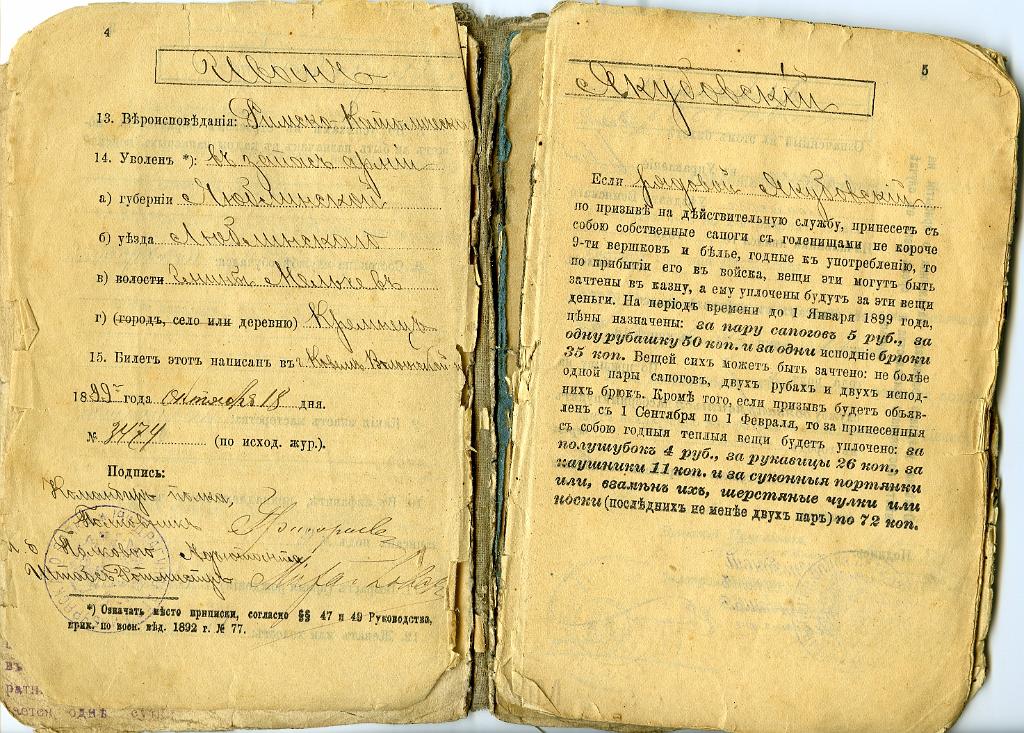 4
Иванъ
13. Вѣроисповѣданія: Римско-Католическаго
14. Уволенъ *): въ запасъ арміи
а) губерніи Люблинской
б) уѣзда Люблинскаго
в) волости
г) (городъ, село или деревню)
15. Билетъ этотъ написанъ въ г.
1899 г. года октября 18 дня.
№ 3474 (по исход. жур.).
Подпись:
Командиръ полка,
Полковникъ
Полковой Адъютантъ
Штабсъ-Ротмистръ
*) Означать мѣсто приписки, согласно §§ 47 и 49 Руководства,
прик. по воен. вѣд. 1892 г. № 77.
5
Якубовскій
Если рядовой Якубовскій
по призывѣ на дѣйствительную службу, принесетъ съ
собою собственные сапоги съ голенищами не короче
9-ти вершковъ и бѣлье, годные къ употребленію, то
по прибытіи его въ войска, вещи эти могутъ быть
зачтены въ казну, а ему уплочены будутъ за эти вещи
деньги. На періодъ времени до 1 Января 1899 года,
цѣны назначены: за пару сапоговъ 5 руб., за
одну рубашку 50 коп. и за одни исподніе брюки
35 коп. Вещей сихъ можетъ быть зачтено: не болѣе
одной пары сапоговъ, двухъ рубахъ и двухъ испод-
нихъ брюкъ. Кромѣ того, если призывъ будетъ объяв-
ленъ съ 1 Сентября по 1 Февраля, то за принесенныя
съ собою годныя теплыя вещи будетъ уплочено: за
полушубокъ 4 руб., за рукавицы 26 коп., за
наушники 11 коп. и за суконныя портянки
или, взамѣнъ ихъ, шерстяные чулки или
носки (послѣднихъ не менѣе двухъ паръ) по 72 коп.